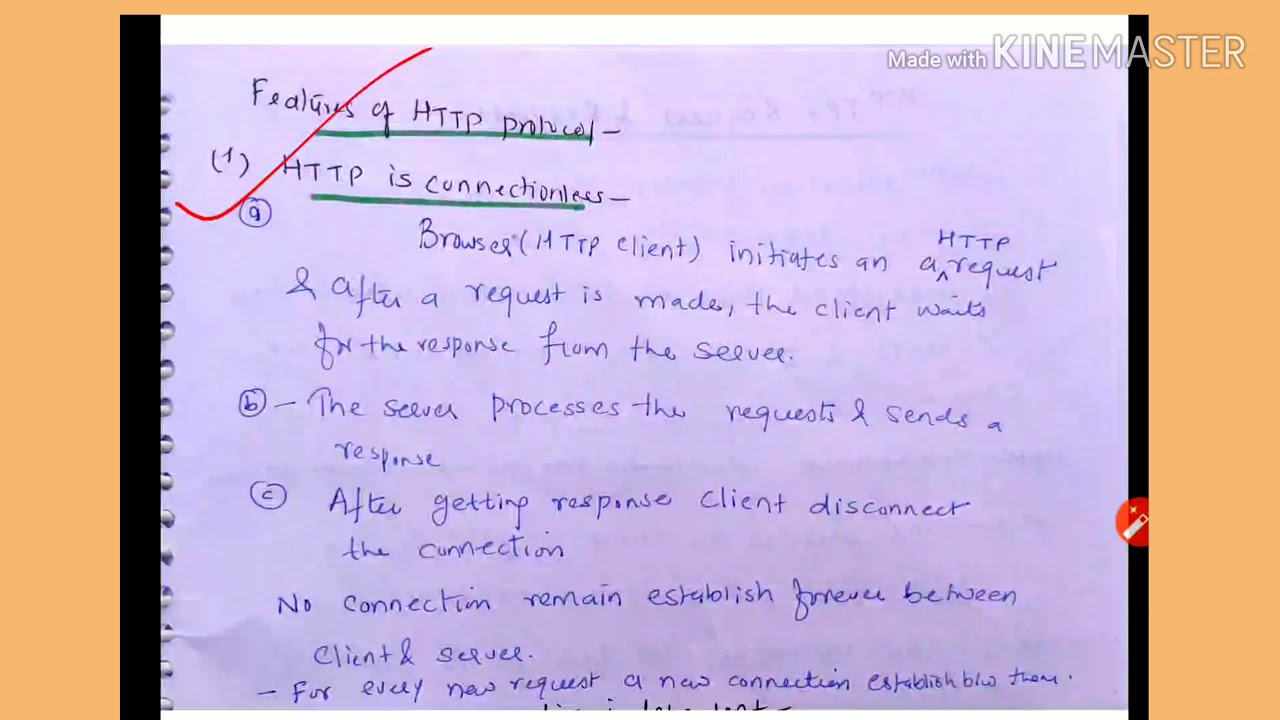 Made with KINEMASTER
Features of HTTP protocol -
(1) HTTP is connectionless -
(a)
Browser (HTTP client) initiates an a HTTP request
& after a request is made, the client waits
for the response from the server.
(b) - The server processes the requests & sends a
response
(c) After getting response client disconnect
the connection
No connection remain establish forever between
client & server.
- For every new request a new connection establish b/w them.